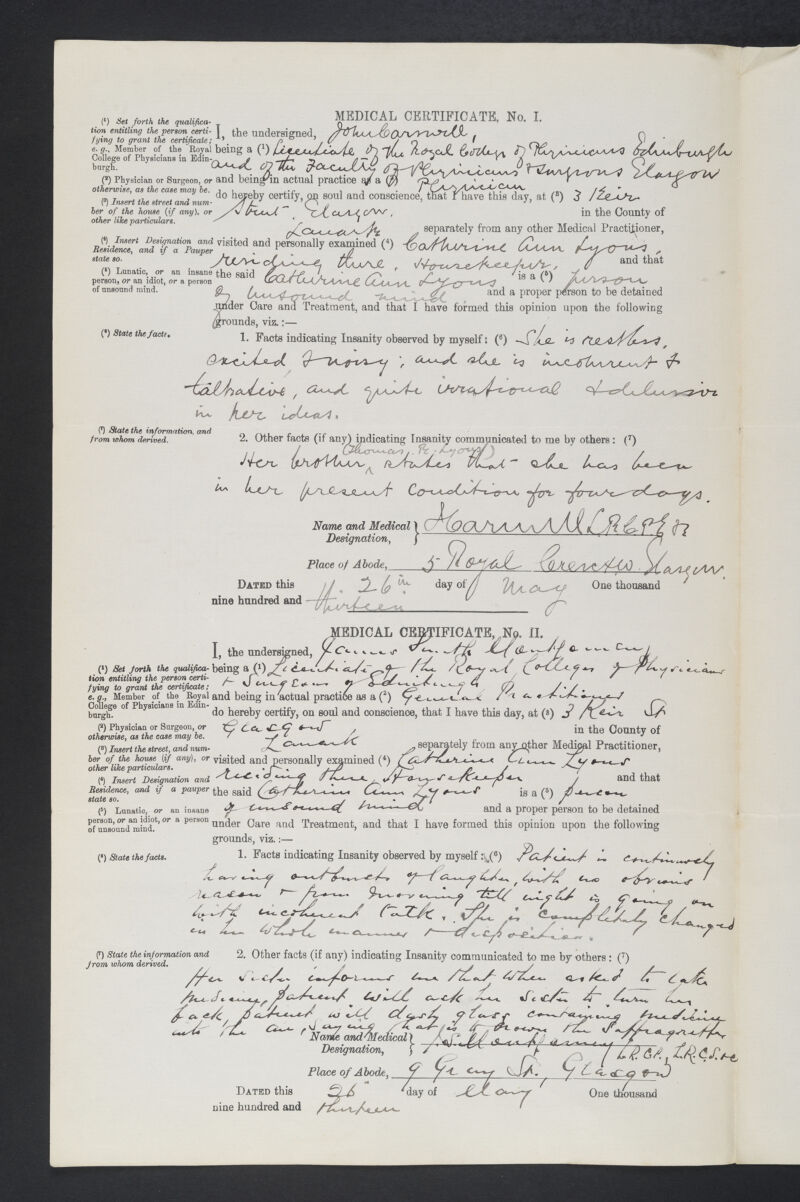 MEDICAL CERTIFICATE, No. I.
(¹) Set forth the qualifica-
tion entitling the person certi-
fying to grant the certificate;
e.g., Member of the Royal
College of Physicians in Edin-
burgh.
(²) Physician or Surgeon, or
otherwise, as the case may be.
(³) Insert the street and num-
ber of the house (if any), or
other like particulars.
(⁴) Insert Designation and
Residence, and if a Pauper
state so.
(⁵) Lunatic, or an insane
person, or an idiot, or a person
of unsound mind.
I, the undersigned, John Carswell,
being a (¹) Licentiate of the Royal College of Physicians Edinburgh
and of the Faculty of Physicians & Surgeons Glasgow
and being in actual practice as a (²) Physician
do hereby certify, on soul and conscience, that I have this day, at (³) 3 Keir
Street, Glasgow. in the County of
Lanark separately from any other Medical Practitioner,
visited and personally examined (⁴) Catherine Ann Lyons,
residing there, Housekeeper, and that
the said Catherine Ann Lyons is a (⁵) person
of unsound mind and a proper person to be detained
under Care and Treatment, and that I have formed this opinion upon the following
grounds, viz.:—
(⁶) State the facts.
1. Facts indicating Insanity observed by myself: (⁶) She is restless,
excited & noisy; and she is incoherent &
talkative, and quite irrational & delusive
in her ideas.
(⁷) State the information, and
from whom derived.
2. Other facts (if any) indicating Insanity communicated to me by others: (⁷)
(Thomas Lyons)
Her brother states that she has been
in her present condition for four days.
Name and Medical Designation, L.R.C.P.E
Place of Abode, 5 Royal Crescent W. Glasgow.
DATED this 26th day of May One thousand
nine hundred and thirteen
MEDICAL CERTIFICATE, No. II.
(¹) Set forth the qualifica-
tion entitling the person certi-
fying to grant the certificate;
e.g., Member of the Royal
College of Physicians in Edin-
burgh.
(²) Physician or Surgeon, or
otherwise, as the case may be.
(³) Insert the street, and num-
ber of the house (if any), or
other like particulars.
(⁴) Insert Designation and
Residence, and if a pauper
state so.
(⁵) Lunatic, or an insane
person, or an idiot, or a person
of unsound mind.
I, the undersigned, James Smith Montgomery
being a (¹) Licentiate of the Royal Colleges of Physicians
& Surgeons of Edinburgh
and being in actual practice as a (²) General Practitioner
do hereby certify, on soul and conscience, that I have this day, at (³) 3 Keir St
Glasgow in the County of
Lanark separately from any other Medical Practitioner,
visited and personally examined (⁴) Catherine Ann Lyons
residing there Housekeeper and that
the said Catherine Ann Lyons is a (⁵) person
of unsound mind and a proper person to be detained
under Care and Treatment, and that I have formed this opinion upon the following
grounds, viz.:—
(⁶) State the facts.
1. Facts indicating Insanity observed by myself: (⁶) Patient is continuously
having outbursts of laughter, with no obvious
reason & from morning till night is going on
with incoherent talk. She is completely changed
in her whole manner & disposition.
(⁷) State the information and
from whom derived.
2. Other facts (if any) indicating Insanity communicated to me by others: (⁷)
Her sister informs me that when asked to take
medicine, patient will ask her sister to turn her
back, patient will dash glass containing medicine
into the air, saying that is to drown the Suffragettes
Name and Medical Designation, J.S. Montgomery L.R.C.P., L.R.C.S.
Place of Abode, 9 Gray St., Glasgow
DATED this 26th day of May One thousand
nine hundred and thirteen